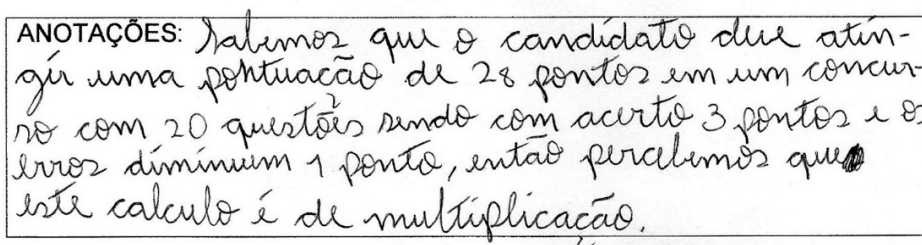 ANOTAÇÕES: Sabemos que o candidato deve atin-
gir uma pontuação de 28 pontos em um concur-
so com 20 questões sendo com acerto 3 pontos e os
erros diminuem 1 ponto, então percebemos que
este calculo é de multiplicação.